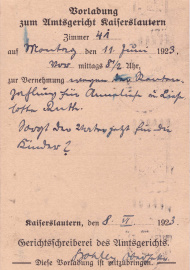 Vorladung
zum Amtsgericht Kaiserslautern
Zimmer 41
auf Montag den 11. Juni 1923,
Vor mittags 8 1/2 Uhr,
zur Vernehmung wegen
zahlung für
Sorgt der Vater jetzt für die
Kinder?
Kaiserslautern, den 8. VI 1923
Gerichtsschreiberei des Amtsgerichts.
Diese Vorladung ist mitzubringen.